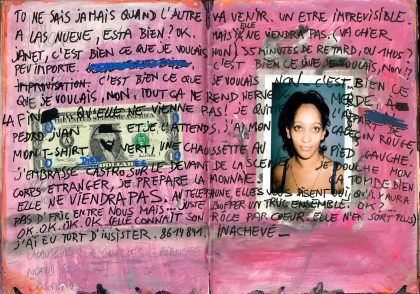 TO NE SAIS JAMAIS QUAND L'AUTRE VA VENIR. UN ETRE IMPREVISIBLE.
A LAS NUEVE, ESTA BIEN? OK. MAIS ELLE NE VIENDRA PAS. VA CHIER
JANET, C'EST BIEN CE QUE JE VOULAIS, NON? 35 MINUTES DE RETARD, OU
PEU IMPORTE. C'EST BIEN CE QUE JE VOULAIS, NON!
IMPROVISATION. C'EST BIEN CE QUE JE VOULAIS NON. C'EST BIEN CE
QUE JE VOULAIS, NON. TOUT ÇA ME REND NERVEUX MERDE, A
LA FIN QU'ELLE NE VIENNE PAS! JE QUITTE L'APPART DE
PEDRO JUAN ET JE L'ATTENDS. J'AI MON CALEÇON ROUGE,
MON T-SHIRT VERT, UNE CHAUSSETTE AU PIED GAUCHE.
J'EMBRASSE CASTRO SUR LE DEVANT DE LA SCENE. JE DOUCHE MON
CORPS ETRANGER, JE PREPARE LA MONNAIE. ÇA TOMBE BIEN
ELLE NE VIENDRA PAS. AU TELEPHONE, ELLES VOUS DISENT OUI, QU'Y AURA
PAS D'FRIC ENTRE NOUS MAIS... JUSTE BOUFFER UN TRUC ENSEMBLE. OK?
OK. OK. OK. OK. (ELLE CONNAÎT SON RÔLE PAR COEUR. ELLE N'EN SORT PLUS)
J'AI EU TORT D'INSISTER. 861481. INACHEVÉ_